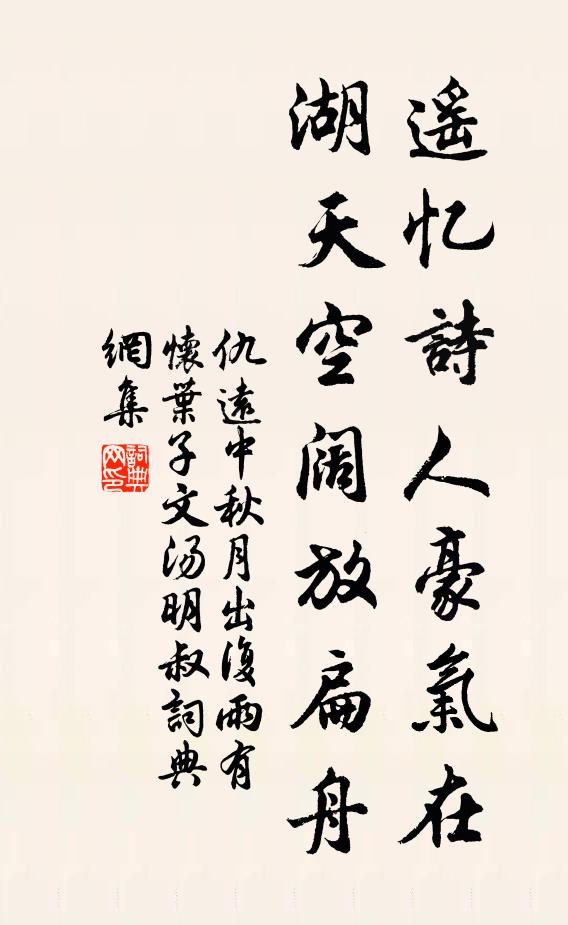 遥忆詩人豪氣在
湖天空阔放扁舟
仇遠中秋月出復雨有
懷葉子文汤明叔詞典
網集
詞典
网印